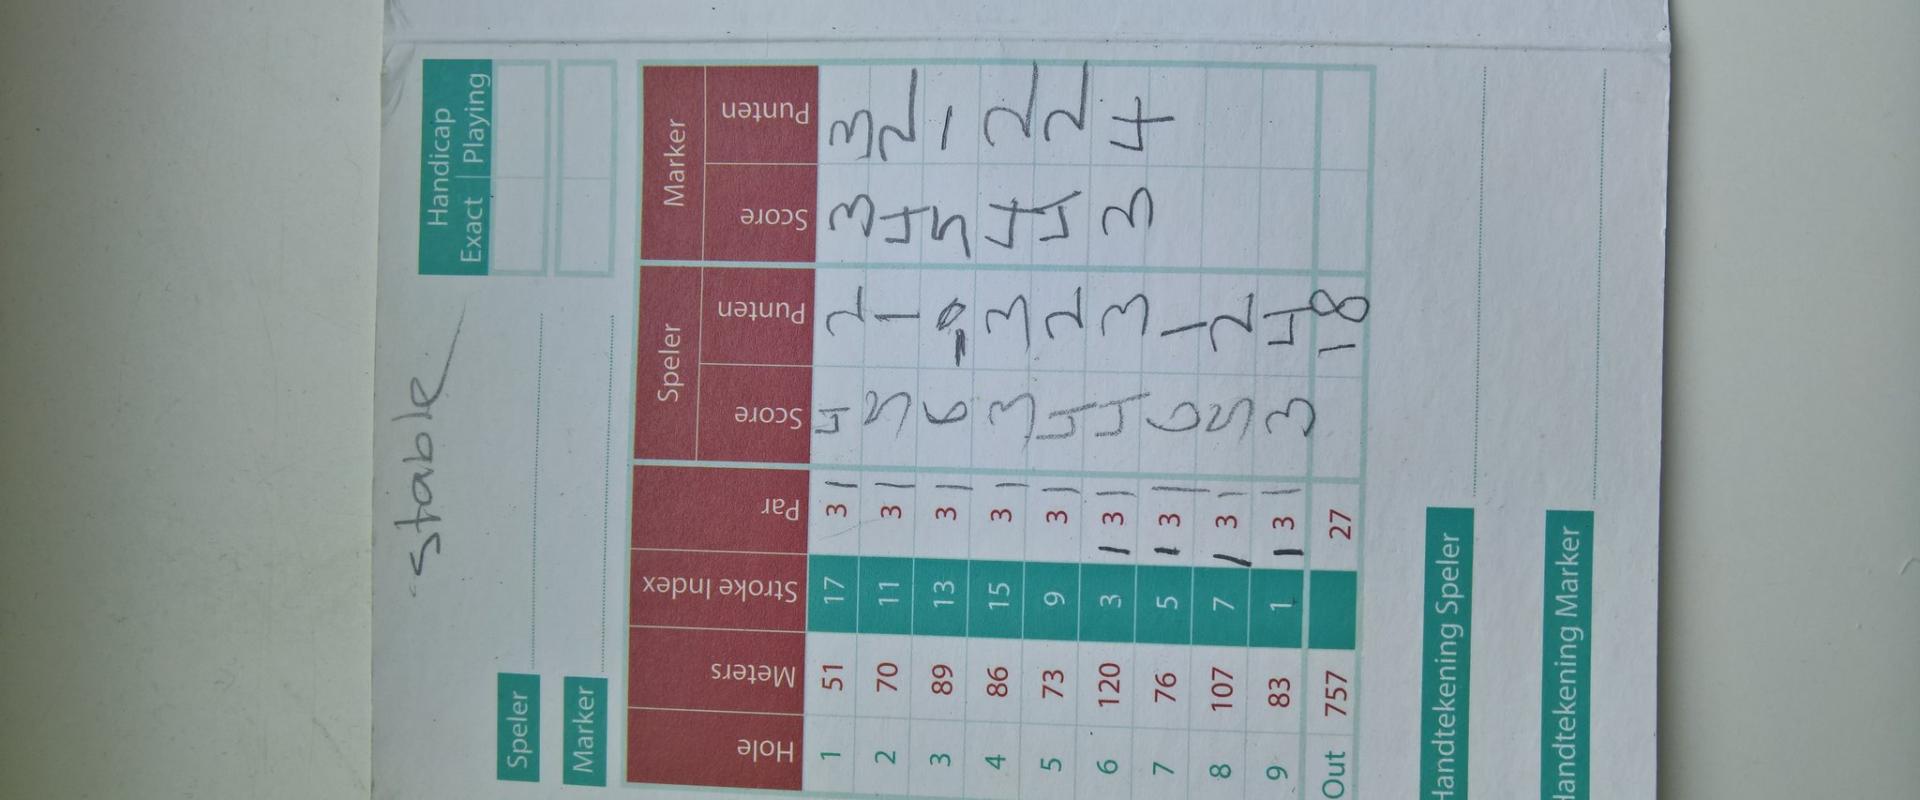 Stable
Handicap
Exact Playing
Speler
Marker
Hole Meters Stroke Index Par Speler Marker
Score Punten Score Punten
1 51 17 3 | 4 2 3 3
2 70 11 3 | 5 1 4 2
3 89 13 3 | 6 0 5 1
4 86 15 3 | 3 3 4 2
5 73 9 3 | 4 2 4 2
6 120 3 | 3 | 4 3 3 4
7 76 5 | 3 | 6 1
8 107 7 | 3 | 5 2
9 83 1 | 3 | 3 4
Out 757 27 18
Handtekening Speler
Handtekening Marker